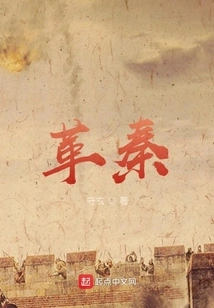 革秦
著
起点中文网